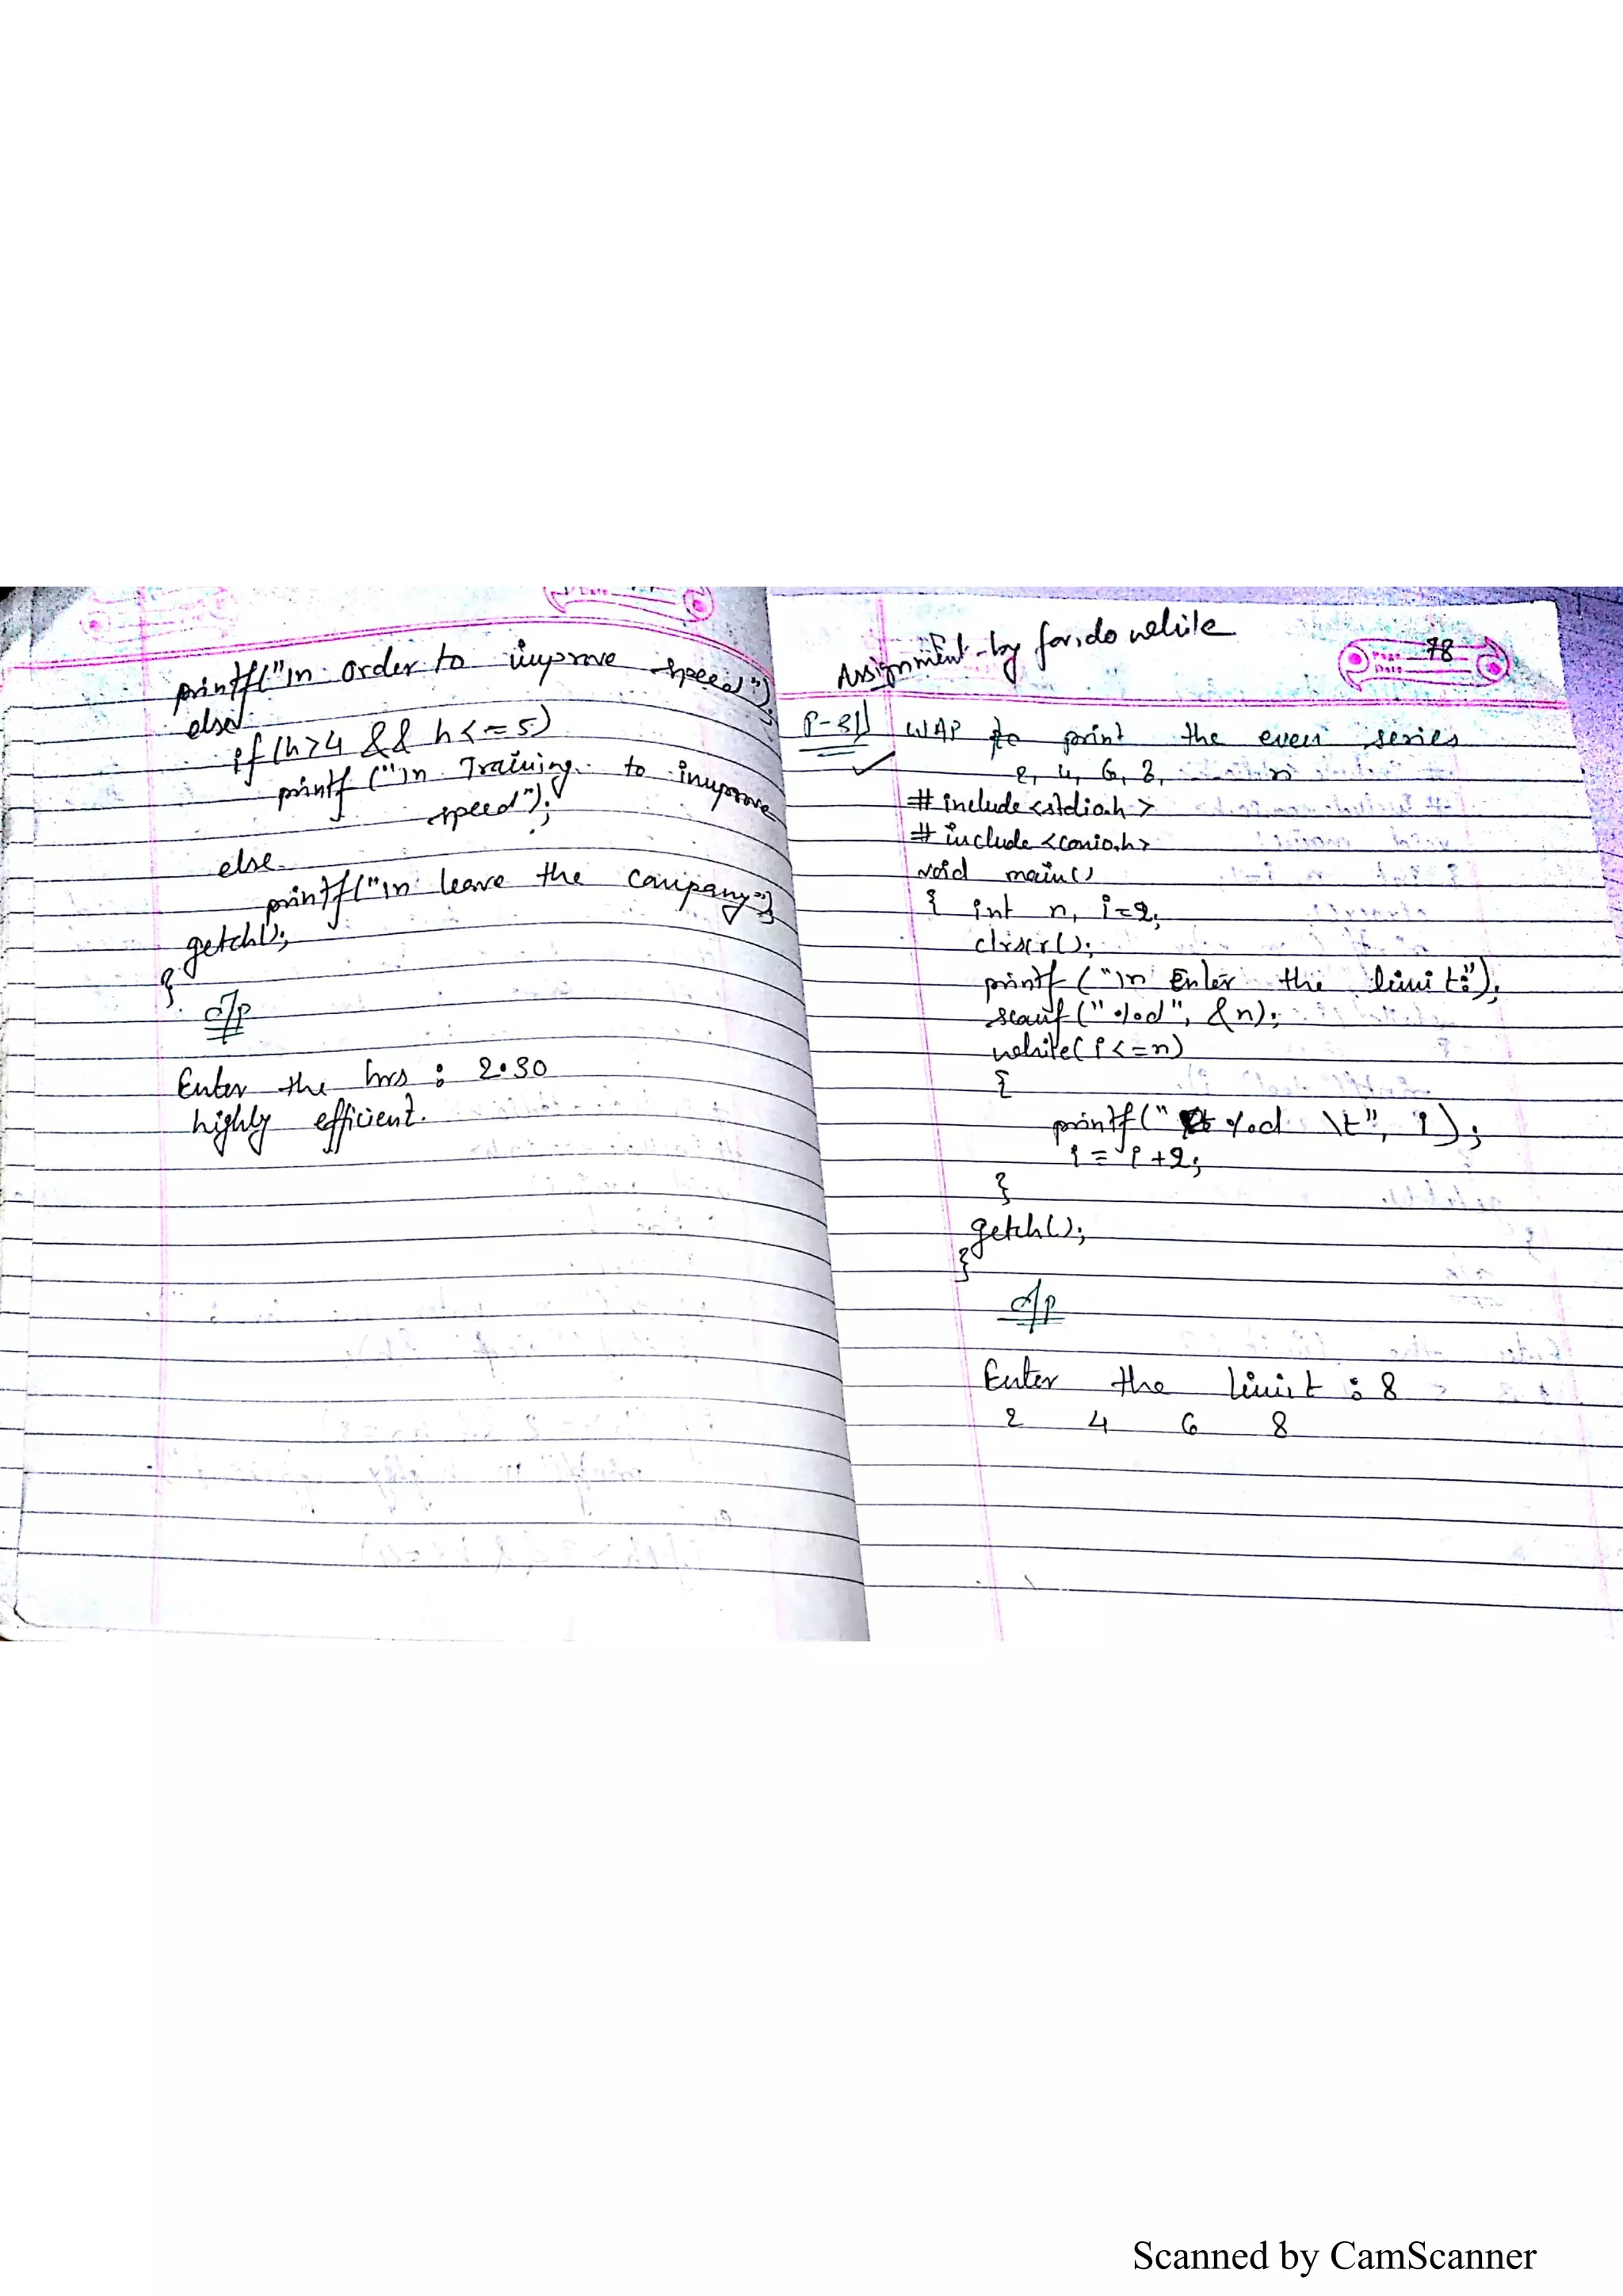 printf("\n order to improve speed");
else
if (h>4 && h<=5)
printf ("\n Training to improve
speed");
else
printf("\n leave the company");
getch();
}
O/P
Enter the hrs : 2.30
highly efficient.
Assignment - by for, do while
78
P-31 WAP to print the even series
2, 4, 6, 8, n
#include <stdio.h>
#include <conio.h>
void main()
{ int n, i=2;
clrscr();
printf ("\n Enter the limit:");
scanf ("%d", &n);
while( i<=n)
{
printf (" %d \t", i);
i = i+2;
}
getch();
}
O/P
Enter the limit : 8
2 4 6 8
Scanned by CamScanner